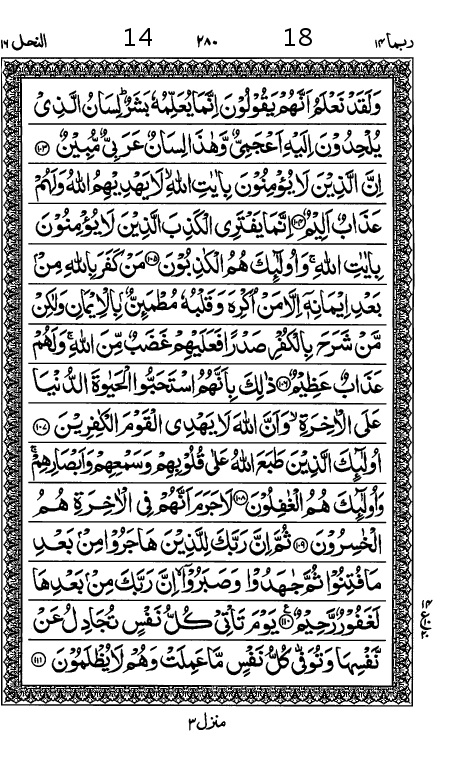 النحل ١٦ 14 ٢٨٠ 18 ربما ١٤
وَلَقَدْ نَعْلَمُ اَنَّهُمْ يَقُوْلُوْنَ اِنَّمَا يُعَلِّمُهٗ بَشَرٌ ؕ لِسَانُ الَّذِيْ
يُلْحِدُوْنَ اِلَيْهِ اَعْجَمِيٌّ وَّهٰذَا لِسَانٌ عَرَبِيٌّ مُّبِيْنٌ ۝١٠٣
اِنَّ الَّذِيْنَ لَا يُؤْمِنُوْنَ بِاٰيٰتِ اللّٰهِ ۙ لَا يَهْدِيْهِمُ اللّٰهُ وَلَهُمْ
عَذَابٌ اَلِيْمٌ ۝١٠٤ اِنَّمَا يَفْتَرِي الْكَذِبَ الَّذِيْنَ لَا يُؤْمِنُوْنَ
بِاٰيٰتِ اللّٰهِ ۚ وَاُولٰٓئِكَ هُمُ الْكٰذِبُوْنَ ۝١٠٥ مَنْ كَفَرَ بِاللّٰهِ مِنْۢ
بَعْدِ اِيْمَانِهٖٓ اِلَّا مَنْ اُكْرِهَ وَقَلْبُهٗ مُطْمَئِنٌّۢ بِالْاِيْمَانِ وَلٰكِنْ
مَّنْ شَرَحَ بِالْكُفْرِ صَدْرًا فَعَلَيْهِمْ غَضَبٌ مِّنَ اللّٰهِ ۚ وَلَهُمْ
عَذَابٌ عَظِيْمٌ ۝١٠٦ ذٰلِكَ بِاَنَّهُمُ اسْتَحَبُّوا الْحَيٰوةَ الدُّنْيَا
عَلَى الْاٰخِرَةِ ۙ وَاَنَّ اللّٰهَ لَا يَهْدِي الْقَوْمَ الْكٰفِرِيْنَ ۝١٠٧
اُولٰٓئِكَ الَّذِيْنَ طَبَعَ اللّٰهُ عَلٰى قُلُوْبِهِمْ وَسَمْعِهِمْ وَاَبْصَارِهِمْ ۚ
وَاُولٰٓئِكَ هُمُ الْغٰفِلُوْنَ ۝١٠٨ لَا جَرَمَ اَنَّهُمْ فِي الْاٰخِرَةِ هُمُ
الْخٰسِرُوْنَ ۝١٠٩ ثُمَّ اِنَّ رَبَّكَ لِلَّذِيْنَ هَاجَرُوْا مِنْۢ بَعْدِ
مَا فُتِنُوْا ثُمَّ جٰهَدُوْا وَصَبَرُوْٓا ۙ اِنَّ رَبَّكَ مِنْۢ بَعْدِهَا
لَغَفُوْرٌ رَّحِيْمٌ ۝١١٠ يَوْمَ تَاْتِيْ كُلُّ نَفْسٍ تُجَادِلُ عَنْ
نَّفْسِهَا وَتُوَفّٰى كُلُّ نَفْسٍ مَّا عَمِلَتْ وَهُمْ لَا يُظْلَمُوْنَ ۝١١١
منزل ٣